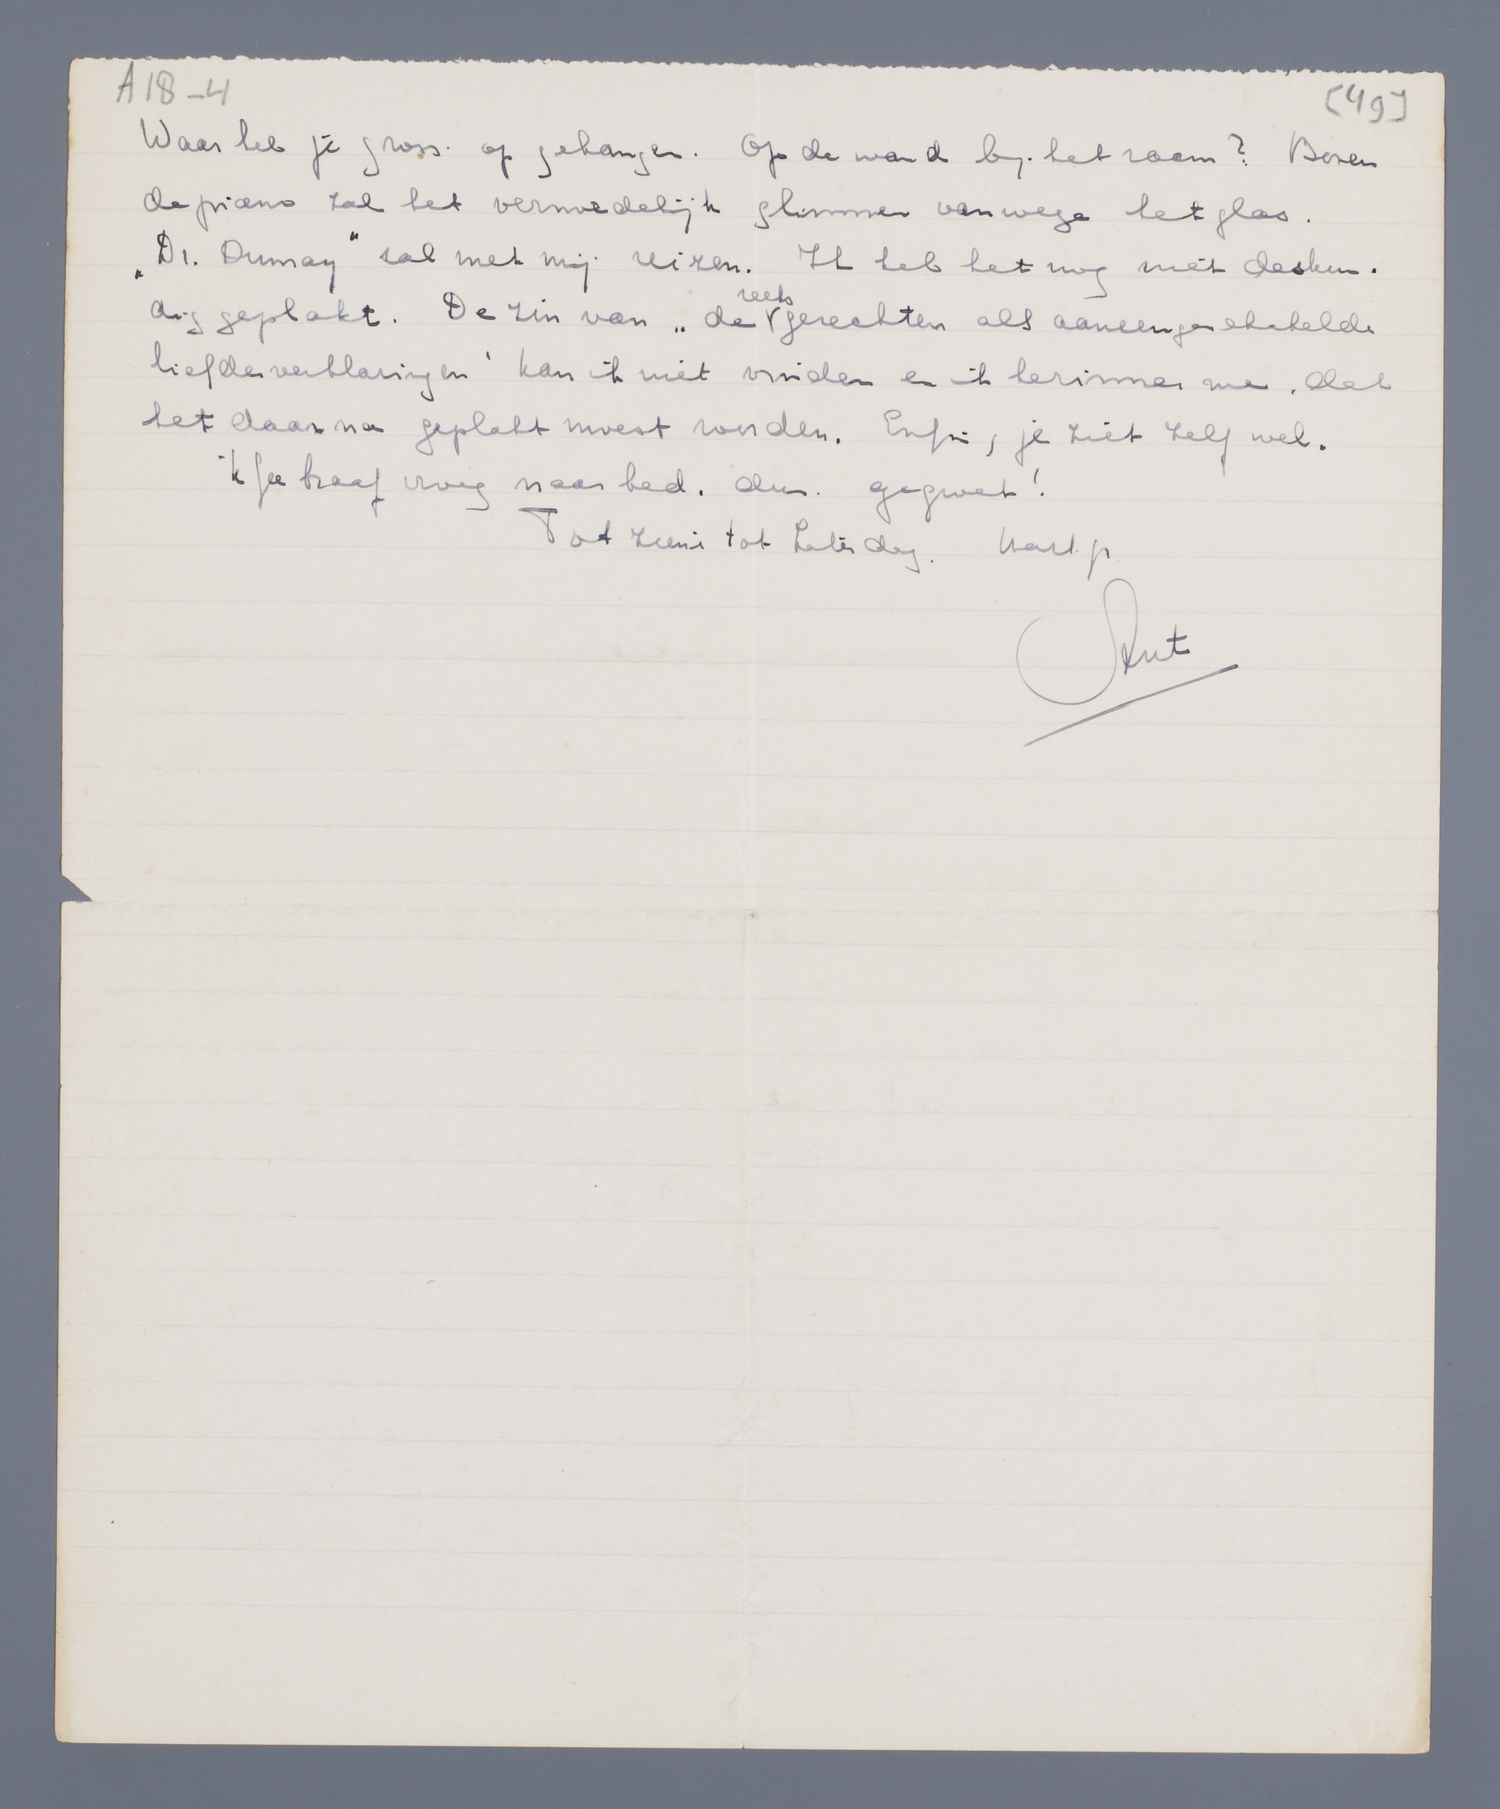 A18-4
[49]
Waar heb je gross. opgehangen. Op de wand bij het raam? Boven
de piano zal het vermoedelijk glimmen vanwege het glas.
„Dr. Dumay" zal met mij reizen. Ik heb het nog niet deskun-
dig geplakt. De zin van „de reeks gerechten als aaneengeschakelde
liefdesverklaringen' kan ik niet vinden en ik herinner me, dat
het daarna geplakt moest worden. Enfin, je ziet zelf wel.
ik ga braaf vroeg naar bed. dus. gegroet!
Tot ziens tot Zaterdag. hart.gr